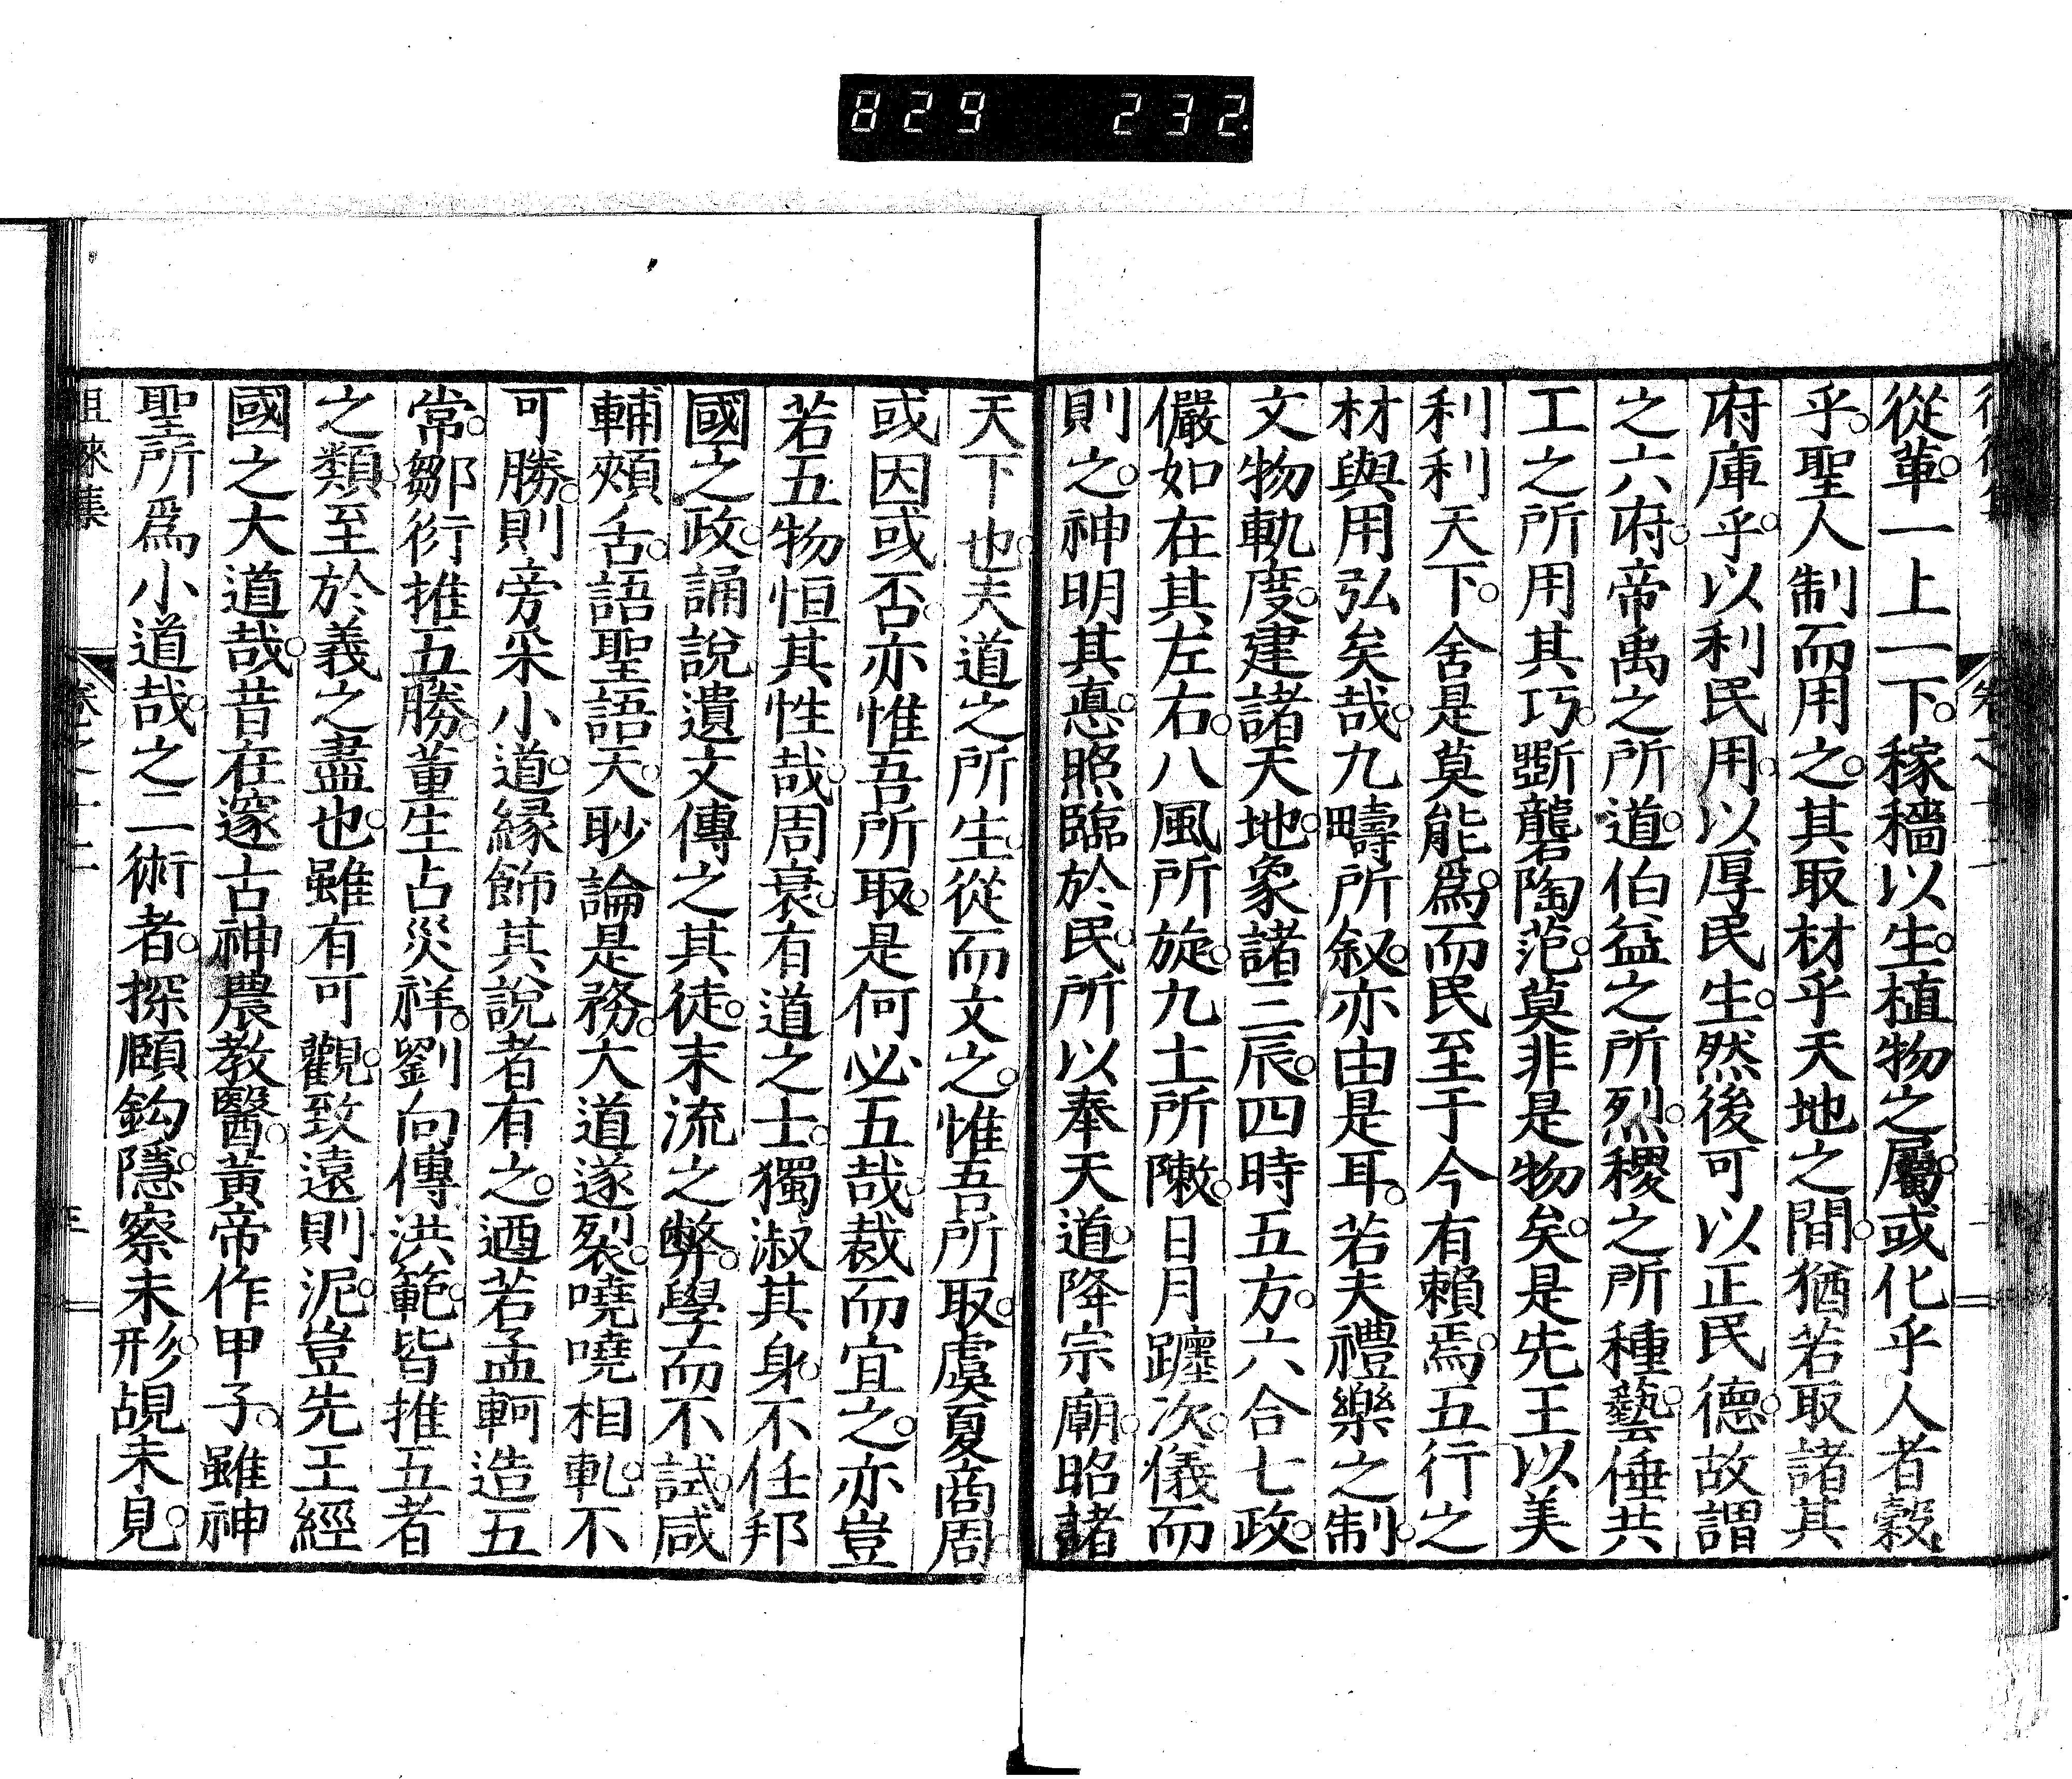 829 232.
從革。一上一下。稼穡以生。植物之屬。或化乎人者。穀
乎。聖人制而用之。其取材乎天地之間。猶若取諸其
府庫乎。以利民用。以厚民生。然後可以正民德。故謂
之六府。帝禹之所道。伯益之所烈。稷之所種藝。倕共
工之所用其巧。斲礱陶范。莫非是物矣。是先王以美
利利天下。舍是莫能爲。而民至于今有賴焉。五行之
材與用弘矣哉。九疇所叙。亦由是耳。若夫禮樂之制。
文物軌度。建諸天地。象諸三辰。四時五方。六合七政。
儼如在其左右。八風所旋。九土所陳。日月躔次。儀而
則之。神明其悳。照臨於民。所以奉天道。降宗廟。昭諸
天下也。夫道之所生。從而文之。惟吾所取。虞夏商周。
或因或否。亦惟吾所取。是何必五哉。裁而宜之。亦豈
若五物恒其性哉。周衰。有道之士。獨淑其身。不任邦
國之政。誦說遺文傳之其徒。末流之弊。學而不試。咸
輔頰舌。語聖語天。眇論是務。大道遂裂。嘵嘵相軋。不
可勝。則旁采小道。緣飾其說者有之。迺若孟軻造五
常。鄒衍推五勝。董生占災祥。劉向傳洪範。皆推五者
之類。至於義之盡也。雖有可觀。致遠則泥。豈先王經
國之大道哉。昔在邃古。神農教醫。黃帝作甲子。雖神
聖所爲小道哉。之二術者。探賾鈎隱。察未形。覘未見。
徂徠集 卷之十二 三